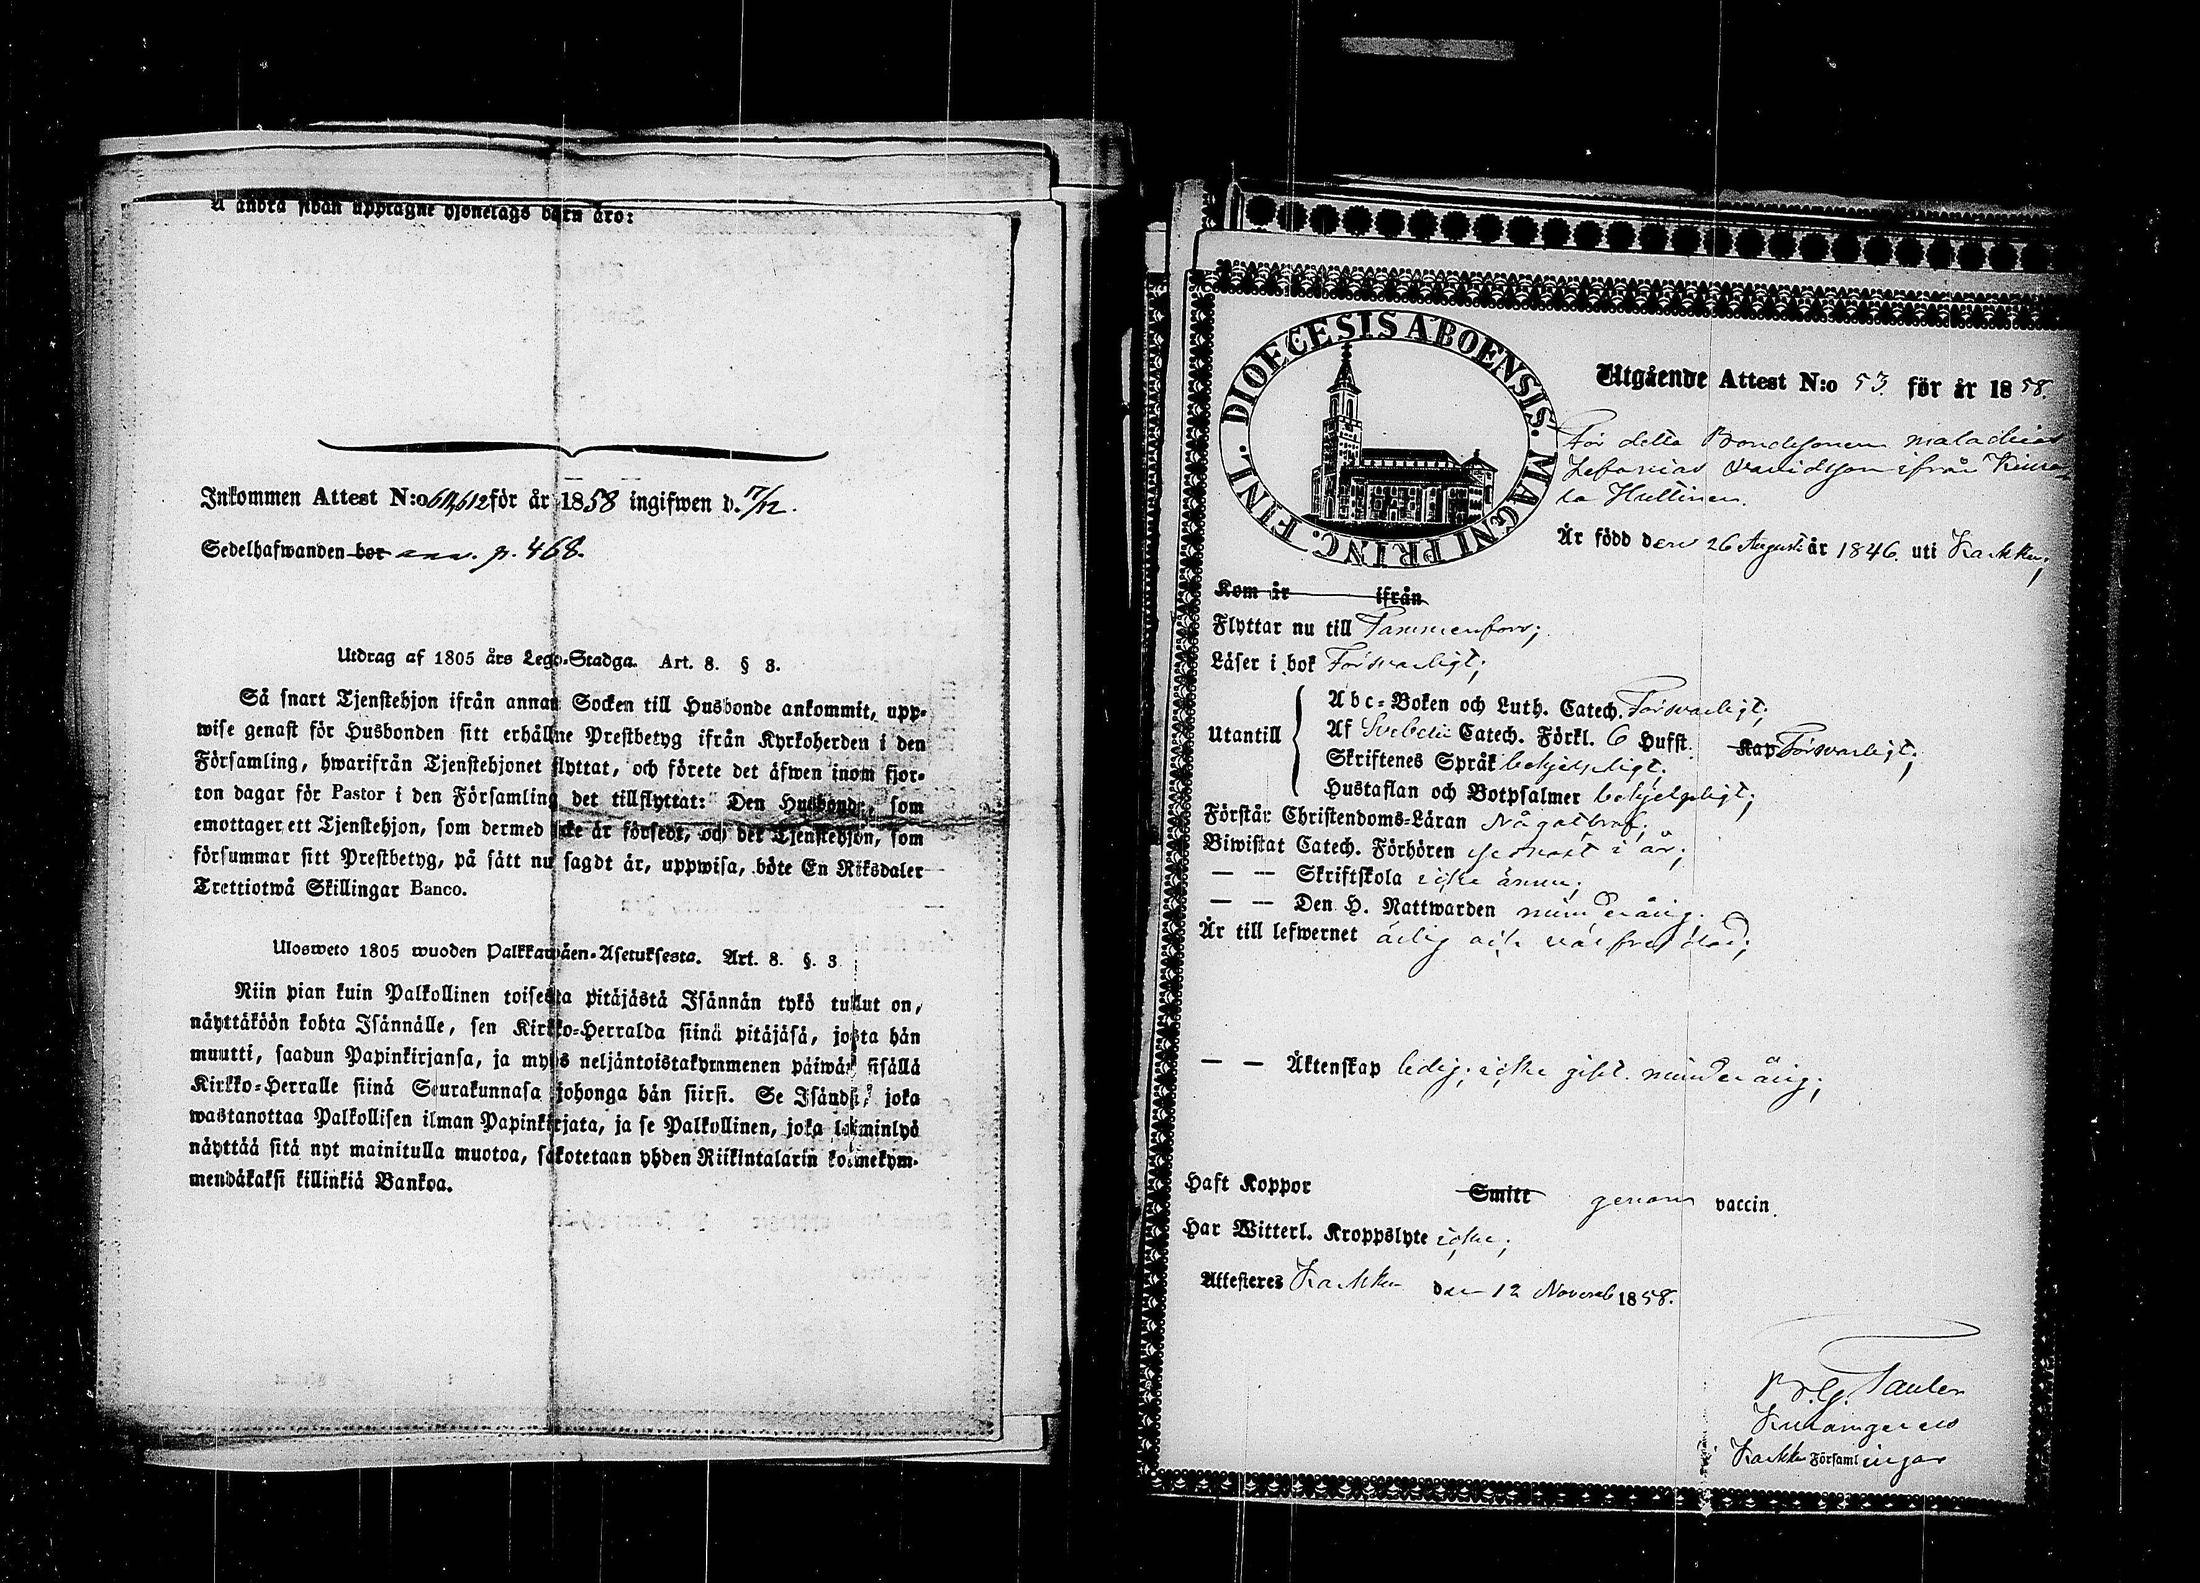 å andra sidan upptagne hjonelags barn äro:
Inkommen Attest N:o 611,612 för år 1858 ingifwen d. 7/12.
Sedelhafwanden bor p. 468.
Utdrag af 1805 års Lego-Stadga. Art. 8. § 3.
Så snart Tjenstehjon ifrån annan Socken till Husbonde ankommit, upp-
wise genast för Husbonden sitt erhållne Prestbetyg ifrån Kyrkoherden i den
Församling, hwarifrån Tjenstehjonet flyttat, och förete det äfwen inom fjor-
ton dagar för Pastor i den Församling det tillflyttat: Den Husbonde, som
emottager ett Tjenstehjon, som dermed icke är försedt, och det Tjenstehjon, som
försummar sitt Prestbetyg, på sätt nu sagdt är, uppwisa, böte En Riksdaler
Trettiotwå Skillingar Banco.
Ulosweto 1805 wuoden Palkkawäen-Asetuksesta. Art. 8. §. 3
Niin pian kuin Palkollinen toisesta pitäjästä Isännän tykö tullut on,
näyttäköön kohta Isännälle, sen Kirkko-Herralda siinä pitäjäsä, josta hän
muutti, saadun Papinkirjansa, ja myös neljäntoistakymmenen päiwän sisällä
Kirkko-Herralle siinä Seurakunnasa johonga hän siirsi. Se Isändä, joka
wastanottaa Palkollisen ilman Papinkirjata, ja se Palkollinen, joka laiminlyö
näyttää sitä nyt mainitulla muotoa, sakotetaan yhden Riikintalarin kolmekym-
mendäkaksi killinkiä Bankoa.
DIOECESIS ABOENSIS. MAGNI PRINC. FINL.
Utgående Attest N:o 53. för år 1858.
För detta Bondesonen
Zefanias Davidsson ifrån
la Huttinen.
Är född den 26 Augusti år 1846. uti Karkku;
Kom år ifrån
Flyttar nu till Tammerfors;
Läser i bok Försvarligt;
Utantill
Abc-Boken och Luth. Catech. Försvarligt;
Af Svebelii Catech. Förkl. 6 Hufst. Kap Försvarligt;
Skriftenes Språk behjelpeligt;
Hustaflan och Botpsalmer behjelpeligt;
Förstår Christendoms-Läran Något
Biwistat Catech. Förhören senast i år;
— — Skriftskola icke ännu;
— — Den H. Nattwarden minderårig.
Är till lefwernet ärlig och välfrejdad;
— — Äktenskap ledig; icke gift. minderårig;
Haft Koppor Smitt genom vaccin.
Har Witterl. Kroppslyte icke;
Attesteras Karkku den 12 Novemb 1858.
Karkku Församlingar